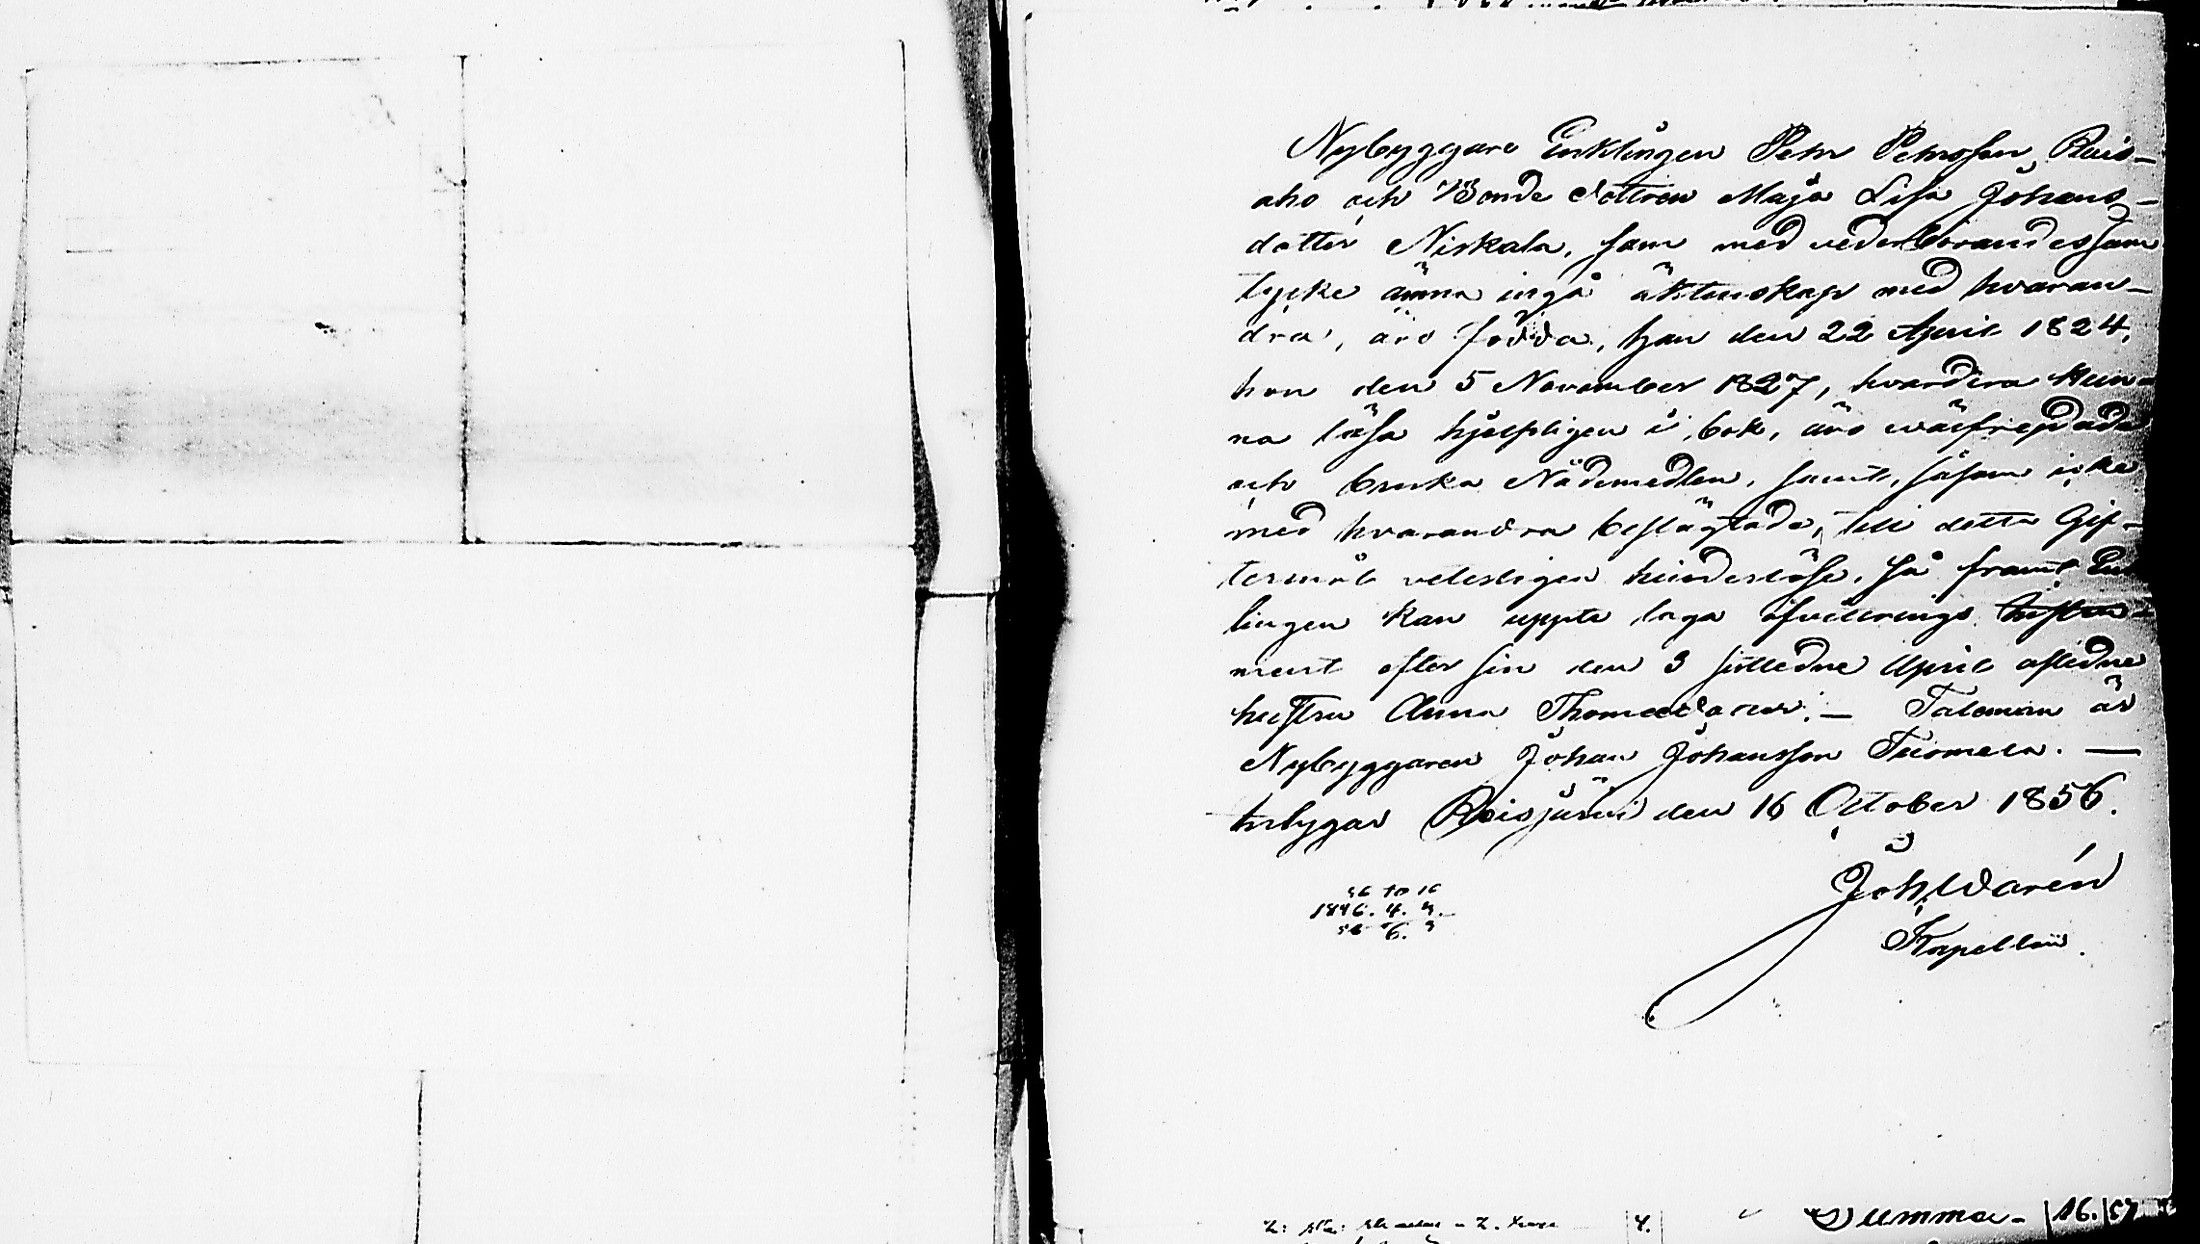 Nybyggare Enklingen Pehr Pehrsson Ruis-
aho och Bonde dottren Maja Lisa Johans-
dotter Niskala, som med vederbörandes sam
tycke ämna ingå äktenskap med hvaran-
dra, äro födda, han den 22 April 1824,
hon den 5 November 1827, hvardera kun-
na läsa hjelpligen i bok, äro wälfrejdade
och bruka Nådemedlen, samt, såsom icke
med hvarandra beslägtade, till detta Gif-
termål veterligen hinderlöse, så framt Enk
lingen kan uppte laga afvittrings
ment efter sin den 3 sistledne April aflidne
hustru Anna Thomædotter. — Taleman är
Nybyggaren Johan Johansson Tuomela. —
betygar Reisjärvi den 16 October 1856.
Joh. Warén
Kapellan.
56 10 16
1846. 4. 3.
6.
4.
Summa - 16.